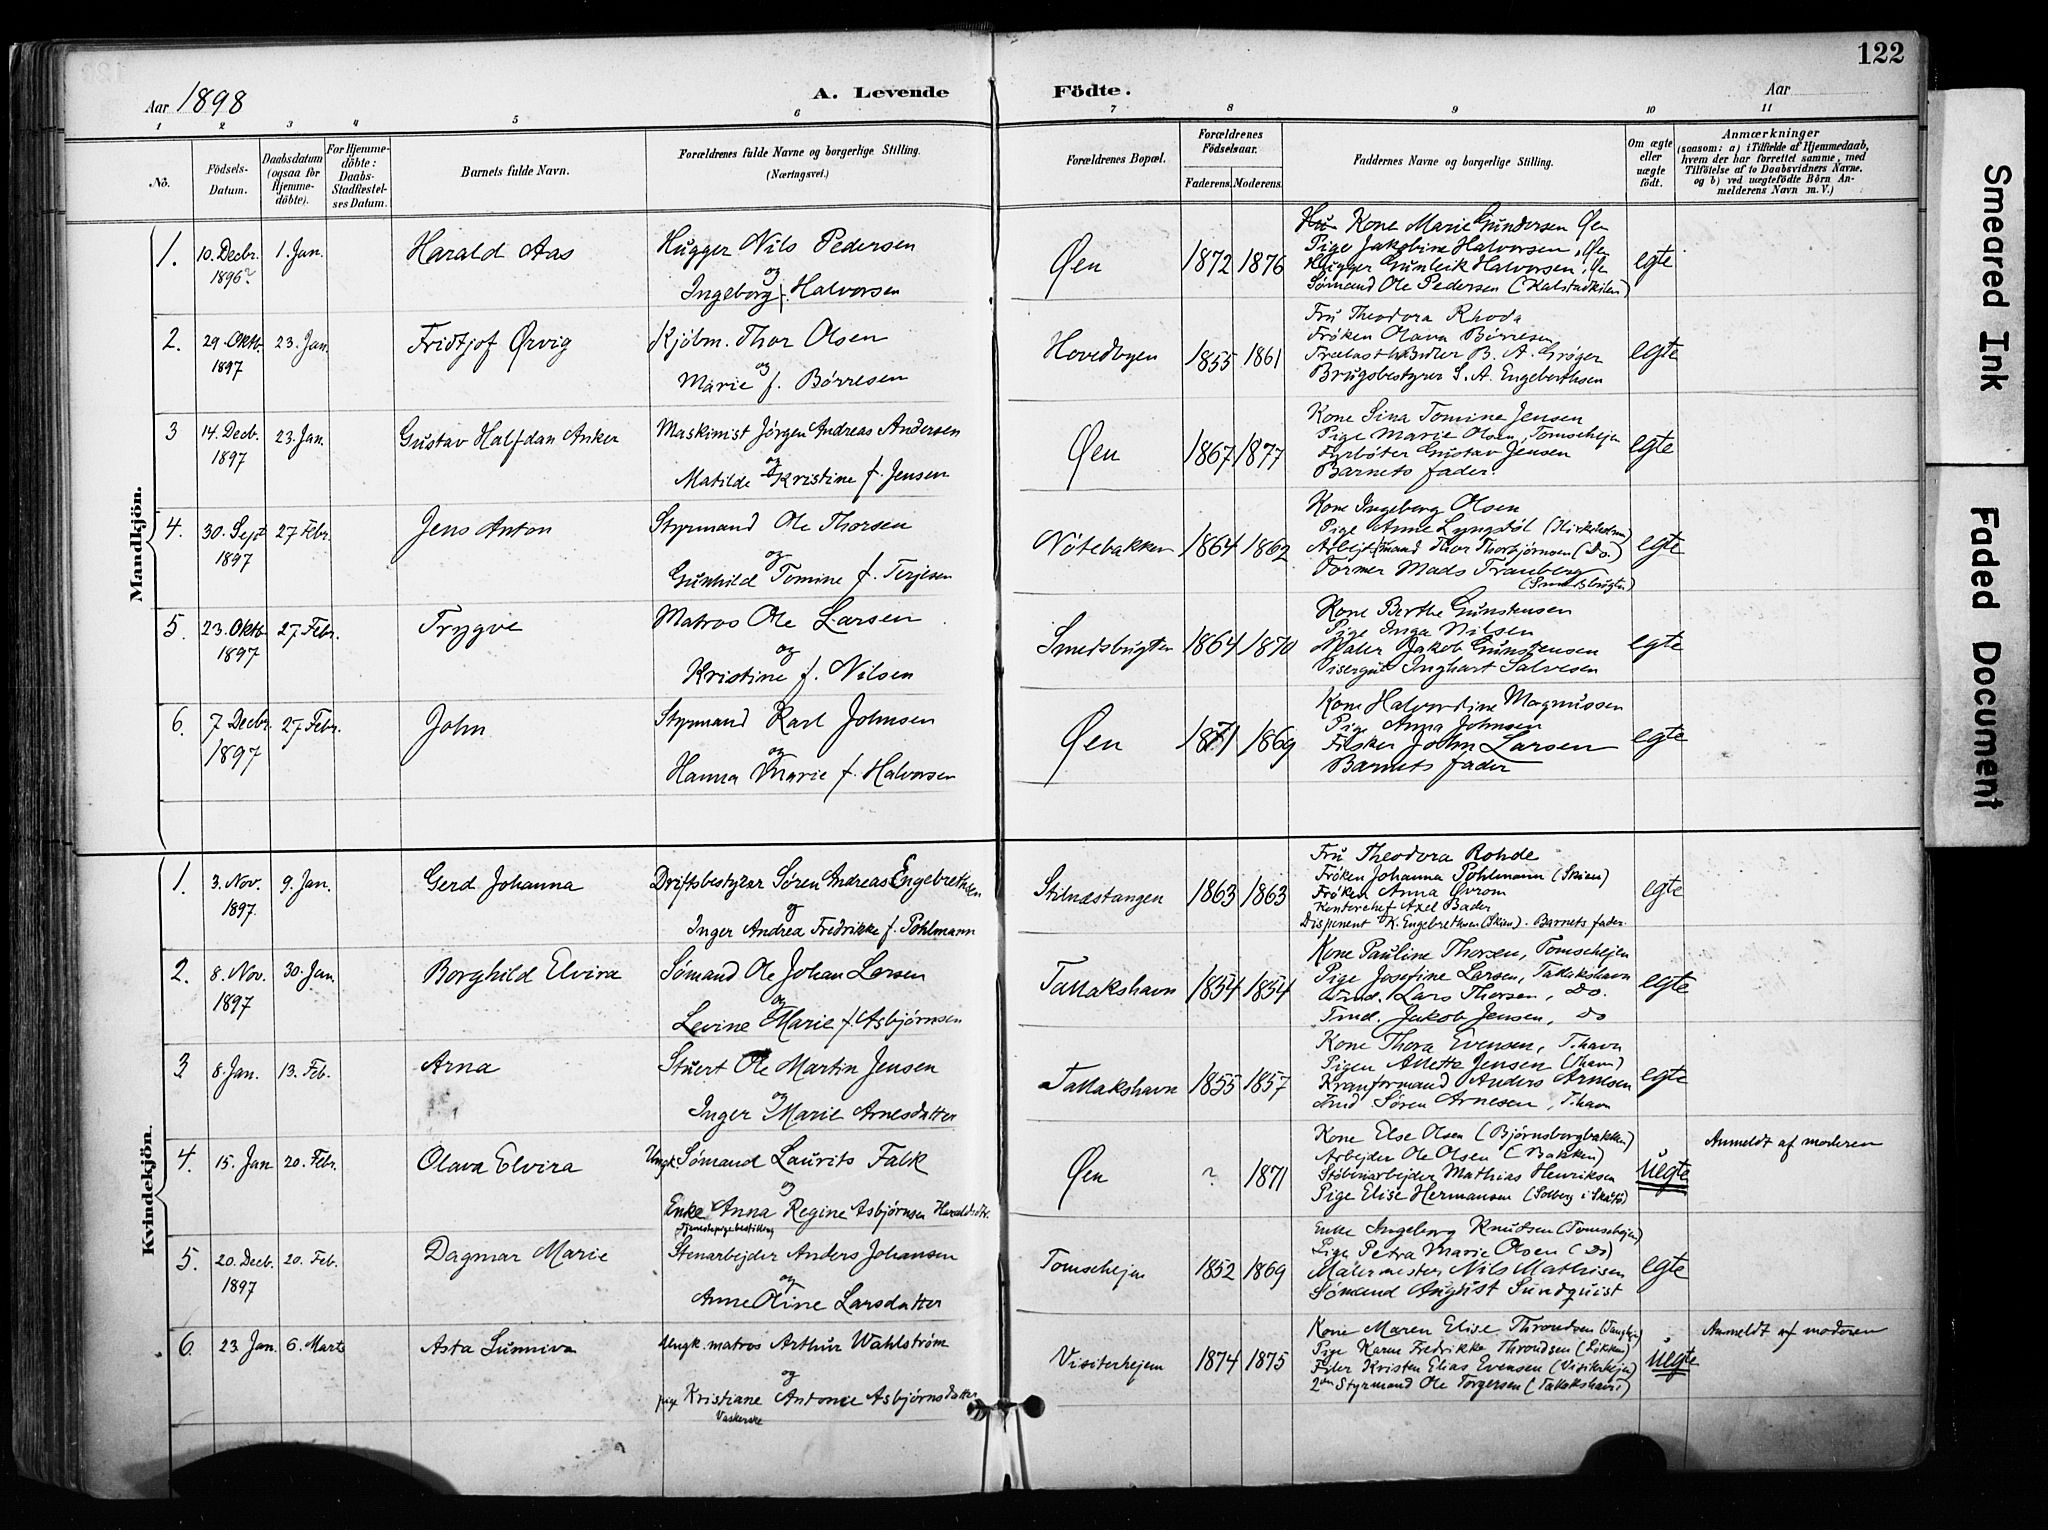 122
Aar 1898
A. Levende Födte.
Aar
1 2 3 4 5 6 7 8 9 10 11
No.
Födsels-Datum.
Daabsdatum (ogsaa for Hjemme-döbte).
For Hjemme-döbte: Daabs-Stadfæstel-ses Datum.
Barnets fulde Navn.
Forældrenes fulde Navne og borgerlige Stilling.
(Næringsvei.)
Forældrenes Bopæl.
Forældrenes Födselsaar.
Faderens. Moderens.
Faddernes Navne og borgerlige Stilling.
Om ægte eller uægte födt.
Anmærkninger
(saasom: a) i Tilfælde af Hjemmedaab,
hvem der har forrettet samme, med
Tilföielse af to Daabsvidners Navne,
og b) ved uægtefödte Börn An-
melderens Navn m. V.)
Mandkjön.
1. 10. Decbr. 1896? 1. Jan. Harald Aas
Hugger Nils Pedersen
og
Ingeborg Halvorsen
Øen 1872 1876
Kone Marie Gundersen Øen
Pige Jakobine Halvorsen, Øen
Hugger Gunleik Halvorsen, Øen
Sømand Ole Pedersen (Kalstadkilen)
egte
2. 29. Oktb. 1897 23. Jan. Fridtjof Ørvig
Kjöbm. Thor Olsen
og
Marie f. Börresen
Hovedbyen 1855 1861
Fru Theodora Rhoda
Frøken Olava Börresen
B. A. Gröger
Brugsbestyrer S. A. Engebrethsen
egte
3 14. Decb. 1897 23. Jan. Gustav Halfdan Anker
Maskinist Jørgen Andreas Andersen
og
Matilde Kristine f. Jensen
Øen 1867 1877
Kone Sina Tomine Jensen
Pige Marie Olsen, Tomschejen
Fyrböter Gustav Jensen
Barnets fader
egte
4. 30. Sept 1897 27 Febr. Jens Anton
Styrmand Ole Thorsen
og
Gunhild Tomine f. Terjesen
Nötebakken 1864 1862
Kone Ingeborg Olsen
Pige Anne Lyngdöl
Arbejdsmand Thor Thorbjörnsen (Do.)
Former Mads Tranberg
(Smedsbugten)
egte
5. 23. Oktb 1897 27 Febr. Trygve
Matros Ole Larsen
og
Kristine f. Nilsen
Smedsbugten 1864 1870
Kone Berthe Gunstensen
Pige Inga Nilsen
Maler Jakob Gunstensen
Visergut Inghart Salvesen
egte
6. 7 Decbr. 1897 27 Febr. John
Styrmand Karl Johnsen
og
Hanna Marie f. Halvorsen
Øen 1871 1869
Kone Halvordine Magnussen
Pige Anna Johnsen
Fisker John Larsen
Barnets fader
egte
Kvindekjön.
1. 3. Nov. 1897. 9. Jan. Gerd Johanna
Driftsbestyrer Søren Andreas Engebrethsen
og
Inger Andrea Fredrikke f. Pöhlmann
Stilnæstangen 1863 1863
Fru Theodora Rohde
Frøken Johanna Pöhlmann (Skien)
Frøken Anna Øvrom
Kontorchef Axel Bader
Disponent K. Engebrethsen (Skien). Barnets fader.
egte
2. 8. Nov. 1897 30. Jan. Borghild Elvira
Sømand Ole Johan Larsen
og
Levine Marie f. Asbjørnsen
Tallakshavn 1854 1854
Kone Pauline Thorsen, Tomschejen
Pige Josefine Larsen, Tallakshavn
Tmd. Lars Thorsen, Do.
Tmd. Jakob Jensen, Do
egte
3 8. Jan. 13. Feb. Arna
Stuert Ole Martin Jensen
og
Inger Marie Arnesdatter
Tallakshavn 1855 1857
Kone Thora Evensen, T.havn
Pigen Alletta Jensen (Thavn)
Kranformand Anders Arnesen
Tmd Søren Arnesen, T.havn
egte
4. 15. Jan 20. Febr. Olava Elvira
Ungk. Sømand Laurits Falk
og
Enke Anna Regine Asbjørnsen Heraldsdtr.
Tjenestepigebestilling
Øen ? 1871
Kone Else Olsen (Bjørnsborgbakken)
Arbejder Ole Olsen (Bakken)
Støberiarbejder Mathias Henriksen
Pige Elise Hermansen (Solberg i Skåtö)
uegte
Anmeldt af moderen
5. 20. Decb. 1897 20. Feb. Dagmar Marie
Stenarbejder Anders Johansen
og
Anne Oline Larsdatter
Tomschejen 1852 1869
Enke Ingeborg Knudsen (Tomschejen)
Pige Petra Marie Olsen (Do)
Malermester Nils Mathisen
Sømand August Sundquist
egte
6. 23 Jan. 6. Marts Asta Sunniva
Ungk. matros Arthur Wahlström
og
pige Kristiane Antonie Asbjørnsdatter
Vaskerske
Visiterhejen 1874 1875
Kone Maren Elise Throndsen
Pige Karen Fredrikke Throndsen (Løkken)
Filer Kristen Elias Evensen (Visiterhejen)
2den Styrmand Ole Torgersen (Tallakshavn)
uegte
Anmeldt af moderen
Smeared Ink
Faded Document